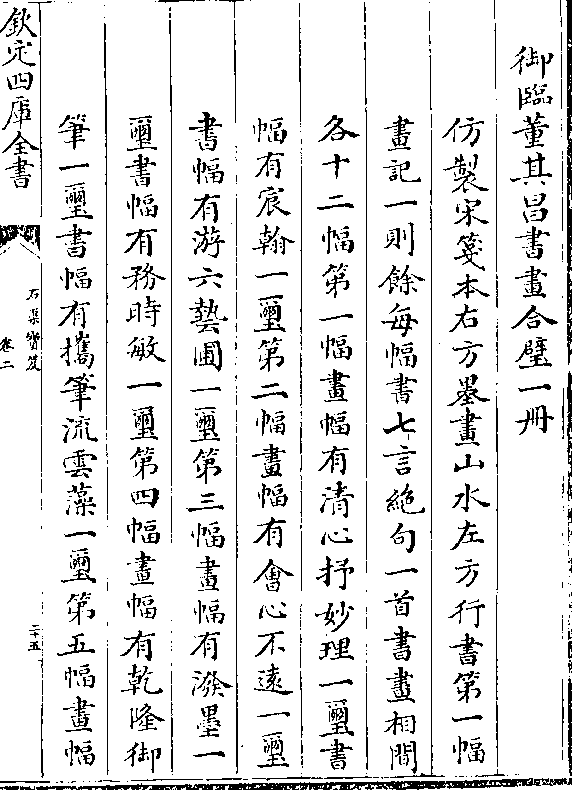 御臨董其昌書畫合璧一冊
仿製宋箋本右方墨畫山水左方行書第一幅
畫記一則餘每幅書七言絶句一首書畫相間
各十二幅第一幅畫幅有清心抒妙理一璽書
幅有宸翰一璽第二幅畫幅有會心不遠一璽
書幅有游六藝圃一璽第三幅畫幅有潑墨一
璽書幅有務時敏一璽第四幅畫幅有乾隆御
筆一璽書幅有擕筆流雲藻一璽第五幅畫幅
欽定四庫全書
石渠寶笈
卷二
二十五